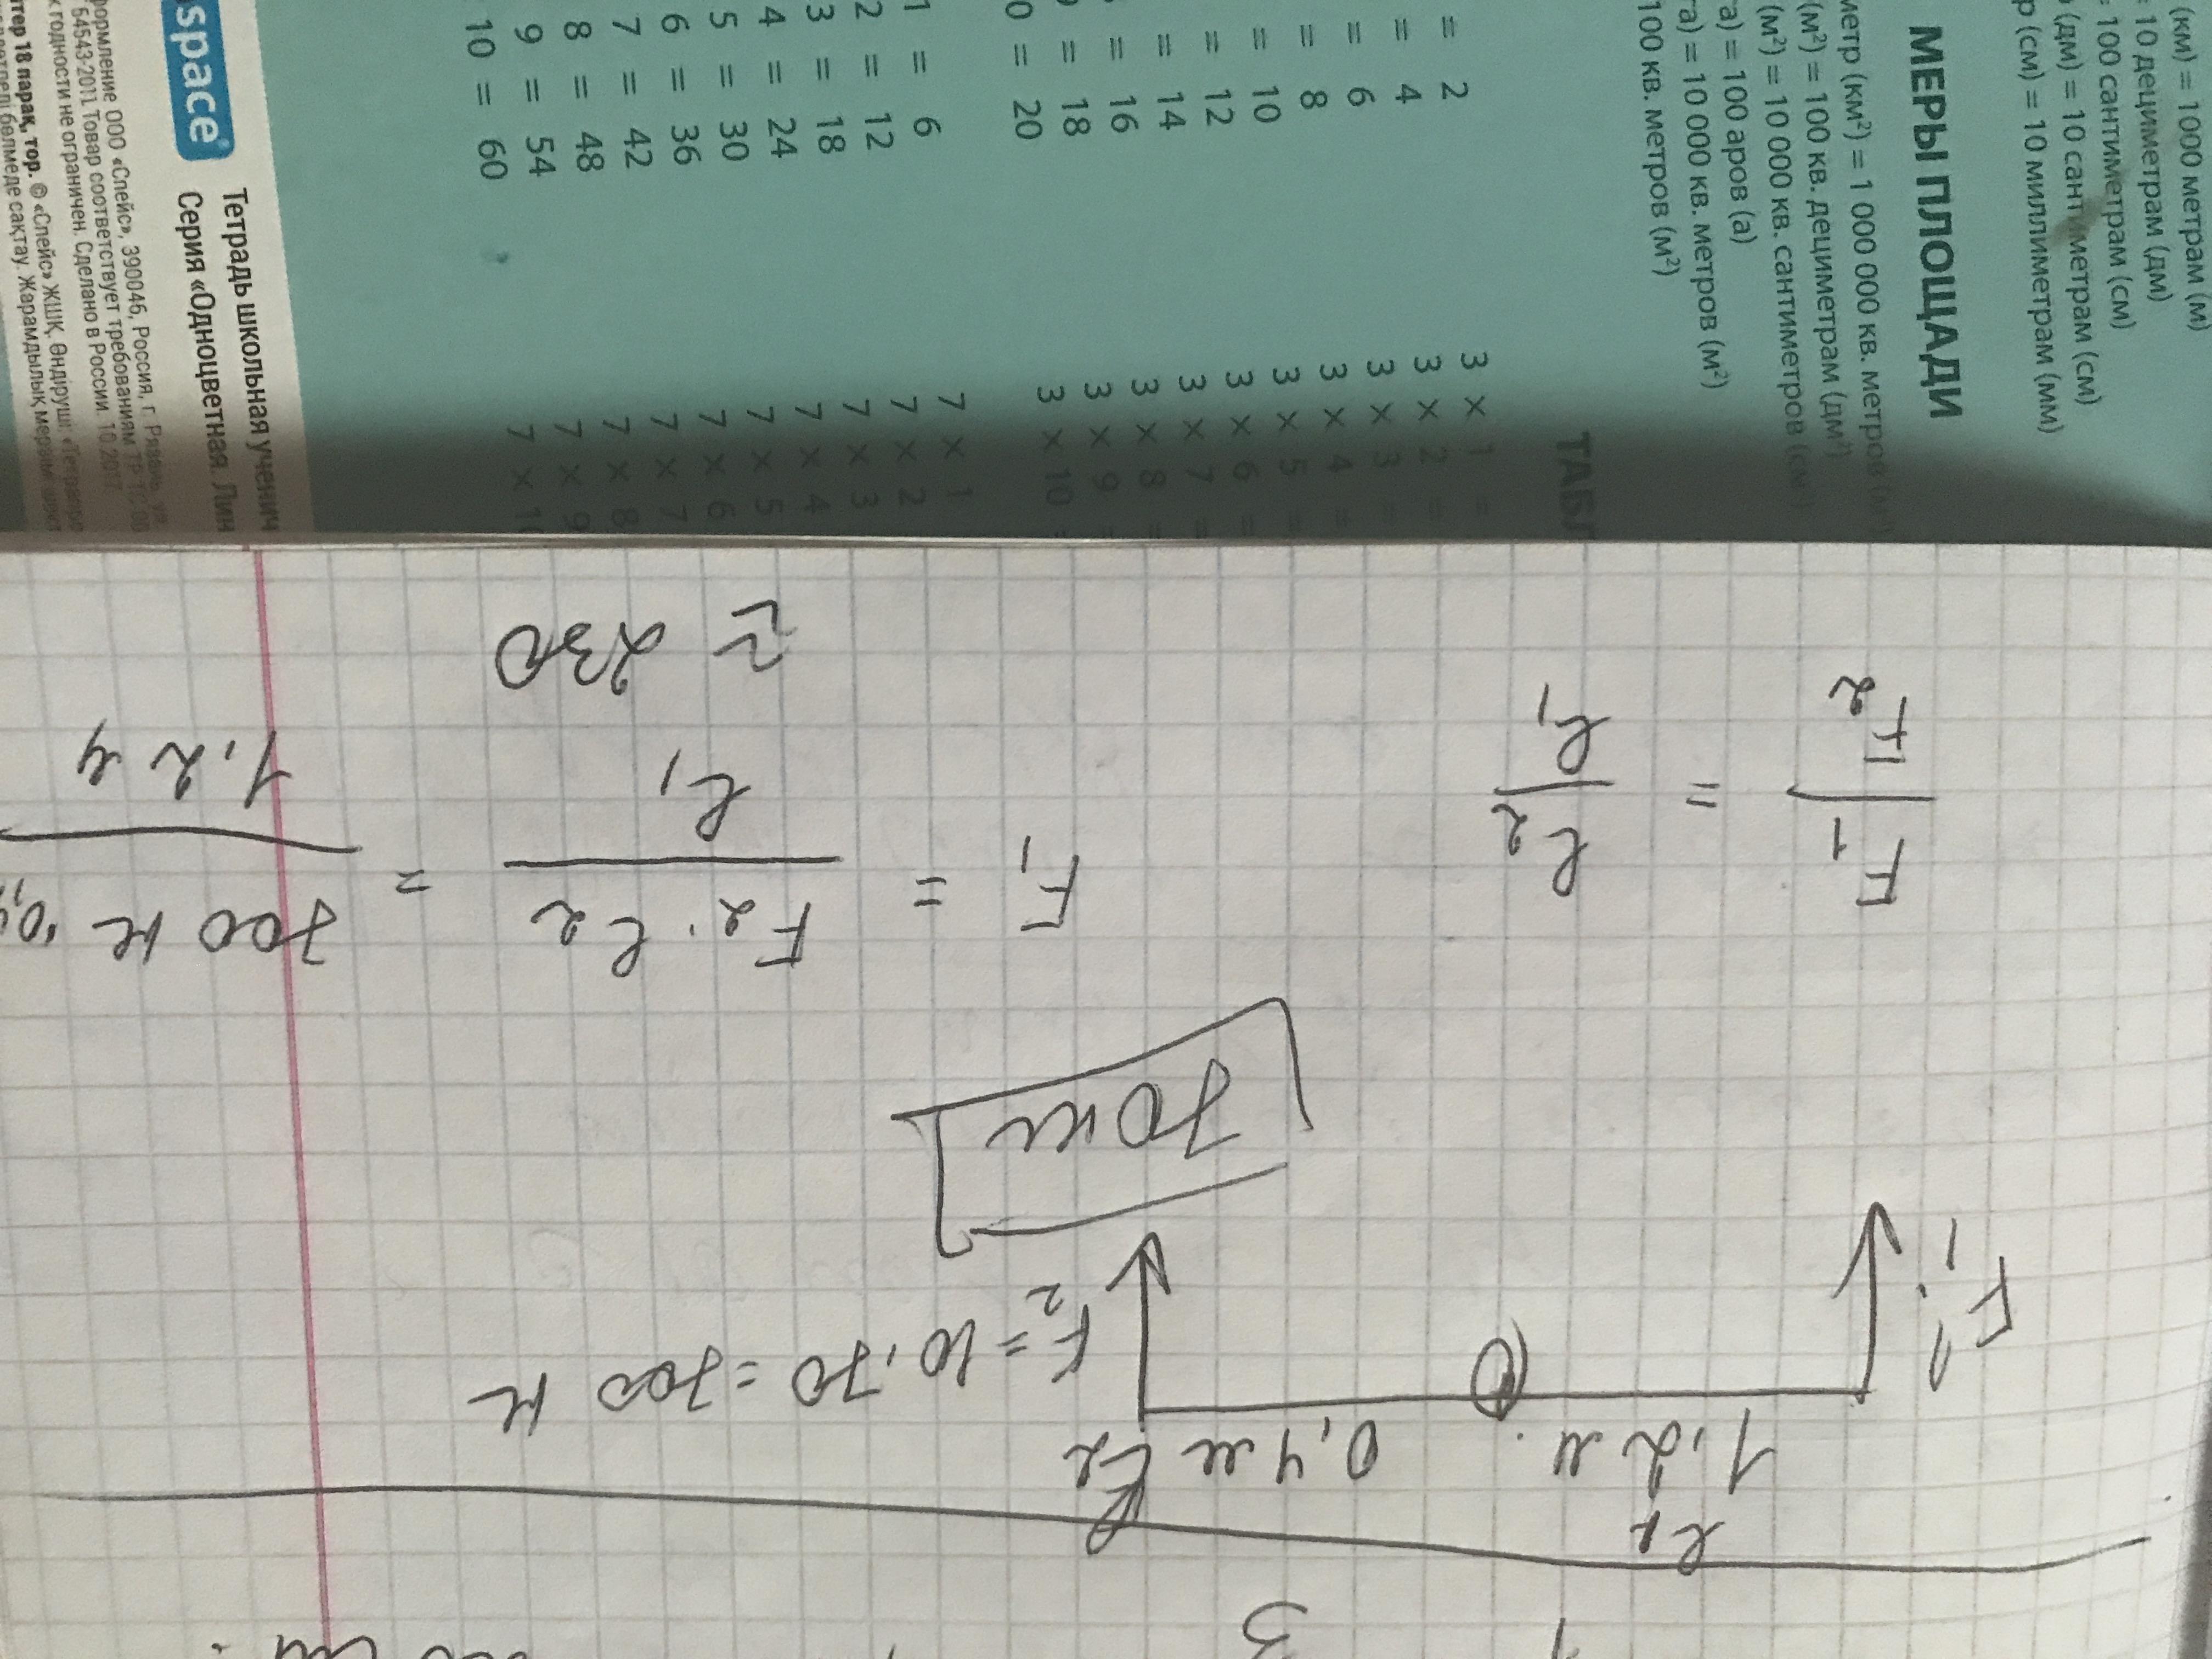 (км) = 1000 метрам (м)
= 10 дециметрам (дм)
= 100 сантиметрам (см)
(дм) = 10 сантиметрам (см)
р (см) = 10 миллиметрам (мм)
МЕРЫ ПЛОЩАДИ
метр (км²) = 1 000 000 кв. метров (м²)
(м²) = 100 кв. дециметрам (дм²)
(м²) = 10 000 кв. сантиметров (см²)
га) = 100 аров (а)
га) = 10 000 кв. метров (м²)
100 кв. метров (м²)
ТАБЛ
= 2
= 4
= 6
= 8
= 10
= 12
= 14
= 16
9 = 18
0 = 20
3 × 1 =
3 × 2 =
3 × 3 =
3 × 4 =
3 × 5 =
3 × 6 =
3 × 7 =
3 × 8 =
3 × 9 =
3 × 10 =
1 = 6
2 = 12
3 = 18
4 = 24
5 = 30
6 = 36
7 = 42
8 = 48
9 = 54
10 = 60
7 × 1
7 × 2
7 × 3
7 × 4
7 × 5
7 × 6
7 × 7
7 × 8
7 × 9
7 × 10
space®
Тетрадь школьная ученич
Серия «Одноцветная. Лин
формление ООО «Спейс», 390046, Россия, г. Рязань, ул.
54543-2011. Товар соответствует требованиям ТР ТС 00
к годности не ограничен. Сделано в России. 10.2017.
тер 18 парақ, тор. © «Спейс» ЖШҚ. Өндіруші:
бөлмеде сақтау. Жарамдылық мерзімі
l1
1,2 м.
0,4 м
l2
F1 - ?
F2 = 10 · 70 = 700 н
70 кг
F1
F2
=
l2
l1
F1 = F2 · l2 / l1 = 700 н · 0,
1,2 м
≈ 230